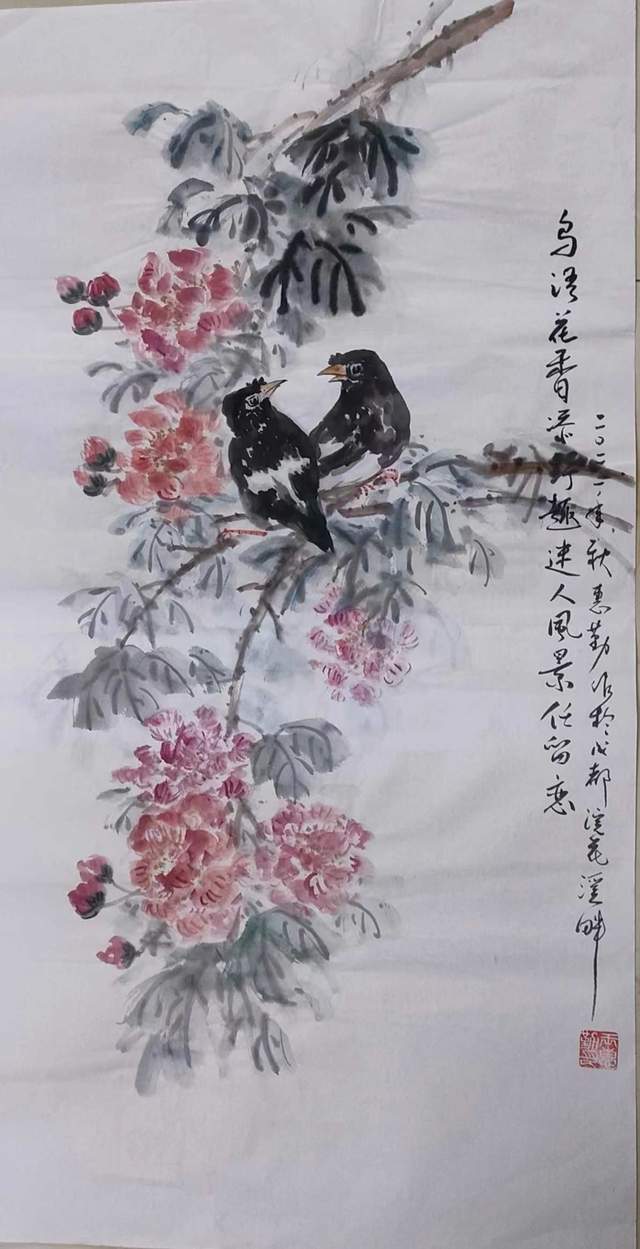 鸟语花香添野趣迷人风景任留恋
二〇二一年秋惠勤作於成都浣花溪畔